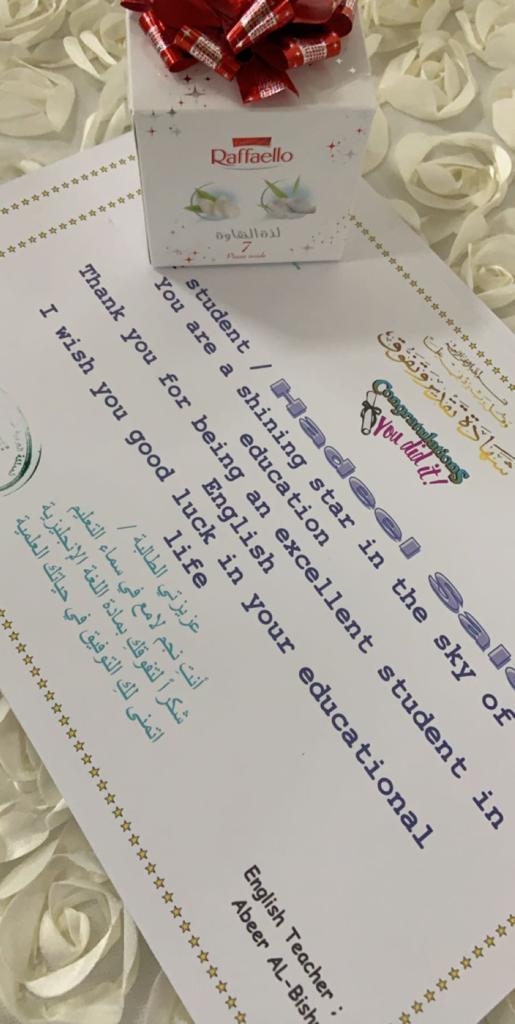 Raffaello
7
شهادة تقدير وتفوق
Congratulations
you did it!
student / Hadeel
You are a shining star in the sky of
education
Thank you for being an excellent student in
English
I wish you good luck in your educational
life
عزيزتي الطالبة /
أنتِ نجم لامع في سماء التعليم
شكراً لتفوقكِ بمادة اللغة الإنجليزية
اتمنى لكِ التوفيق في حياتك العلمية
English Teacher :
Abeer